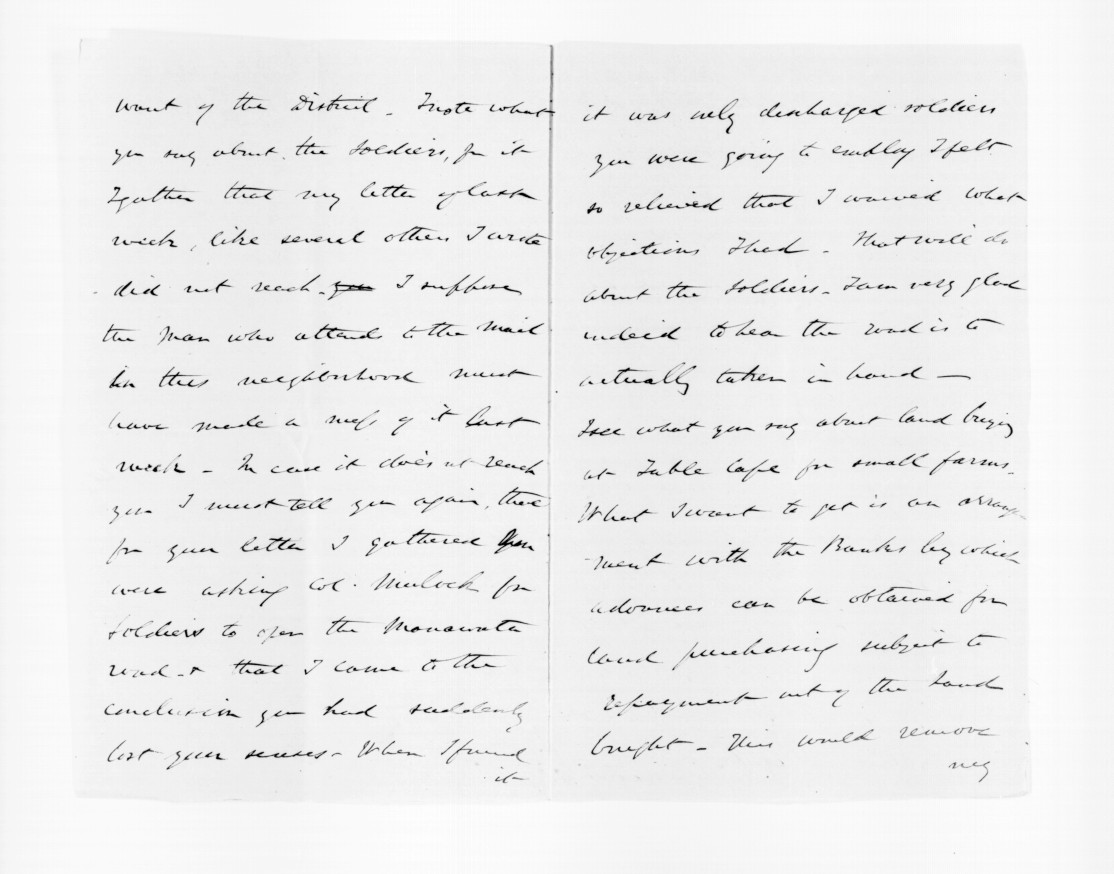 want of the District - I note what
you say about the Soldiers, for it
I gather that my letter of last
week, like several others I wrote
did not reach you I suppose
the Man who attends to the Mail
in this neighborhood must
have made a mess of it last
week - In case it does not reach
you I must tell you again, that
fm your letter I gathered you
were asking Col. Mulock for
Soldiers to open the Manawatu
road - & that I came to the
conclusion you had suddenly
lost your senses - When I found
it
it was only discharged soldiers
you were going to employ I felt
so relieved that I waived what
objections I had - That will do
about the Soldiers - I am very glad
indeed to hear the road is to
actually taken in hand —
I see what you say about land buying
at Table Cape for small farms -
What I want to get is an arrange
-ment with the Banks by which
advances can be obtained for
land purchasing subject to
repayment out of the Land
bought - This would remove
my